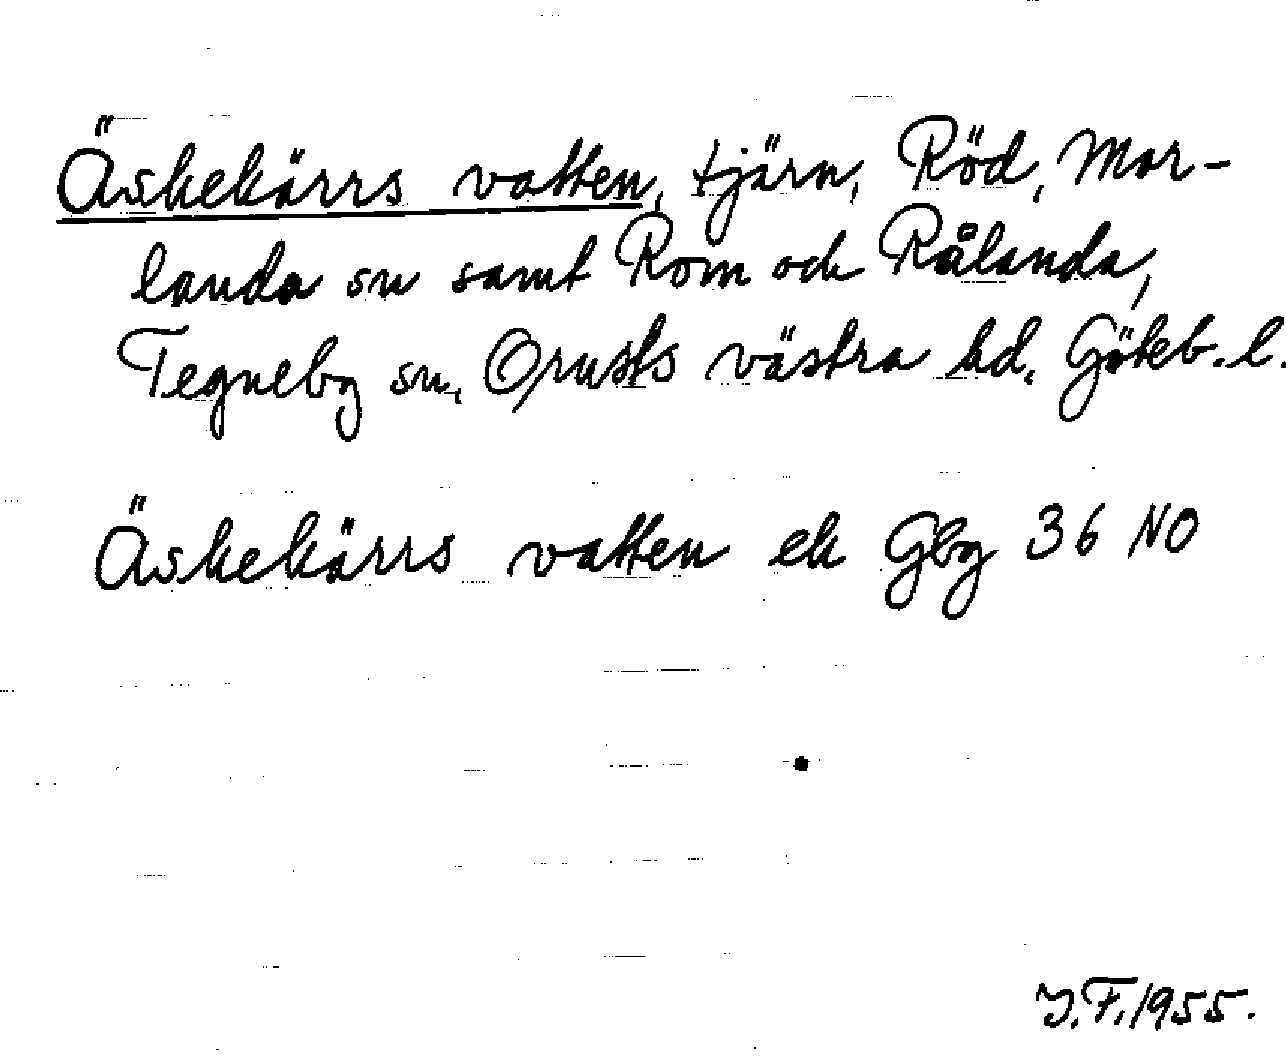 Äskekärrs vatten, tjärn, Röd, Mor-
landa sn samt Rom och Rålanda,
Tegneby sn, Orusts västra hd, Göteb. l.
Äskekärrs vatten ek Gbg 36 NO
J.F. 1955.